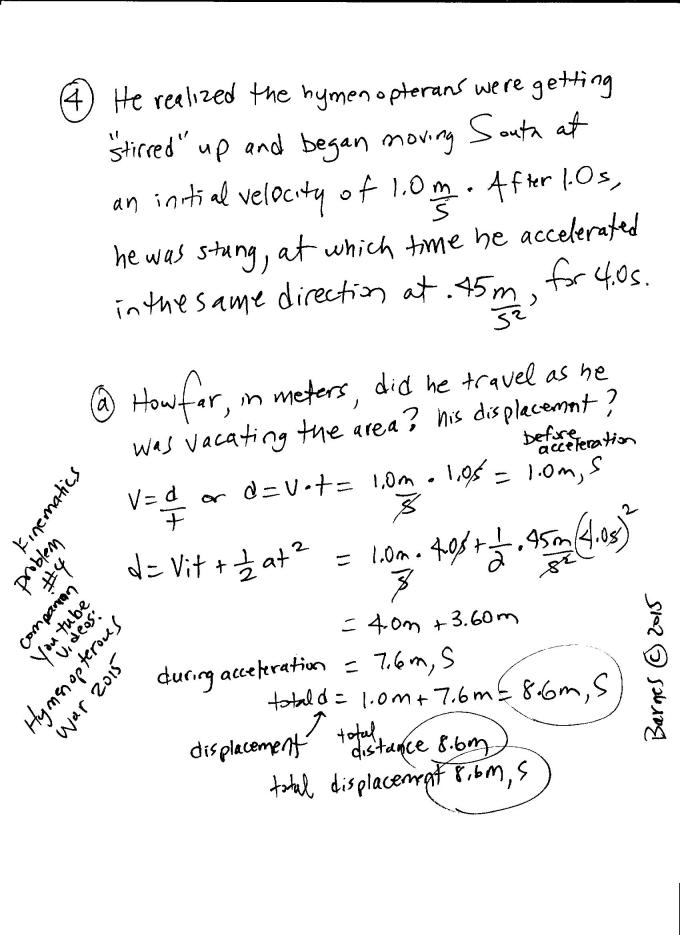 ④ He realized the hymenopterans were getting
"stirred" up and began moving South at
an initial velocity of 1.0 m/s. After 1.0s,
he was stung, at which time he accelerated
in the same direction at .45 m/s², for 4.0s.
ⓐ How far, in meters, did he travel as he
was vacating the area? his displacemnt?
before
acceleration
V = d/t or d = V·t = 1.0m/s · 1.0s = 1.0m, S
d = Vit + 1/2 at² = 1.0m/s · 4.0s + 1/2 · .45m/s² (4.0s)²
= 4.0m + 3.60m
during acceleration = 7.6m, S
total d = 1.0m + 7.6m = 8.6m, S
displacement
total
distance 8.6m
total displacement 8.6m, S
Kinematics
problem
#4
companion
You tube
videos:
Hymenopterous
War 2015
Barnes © 2015